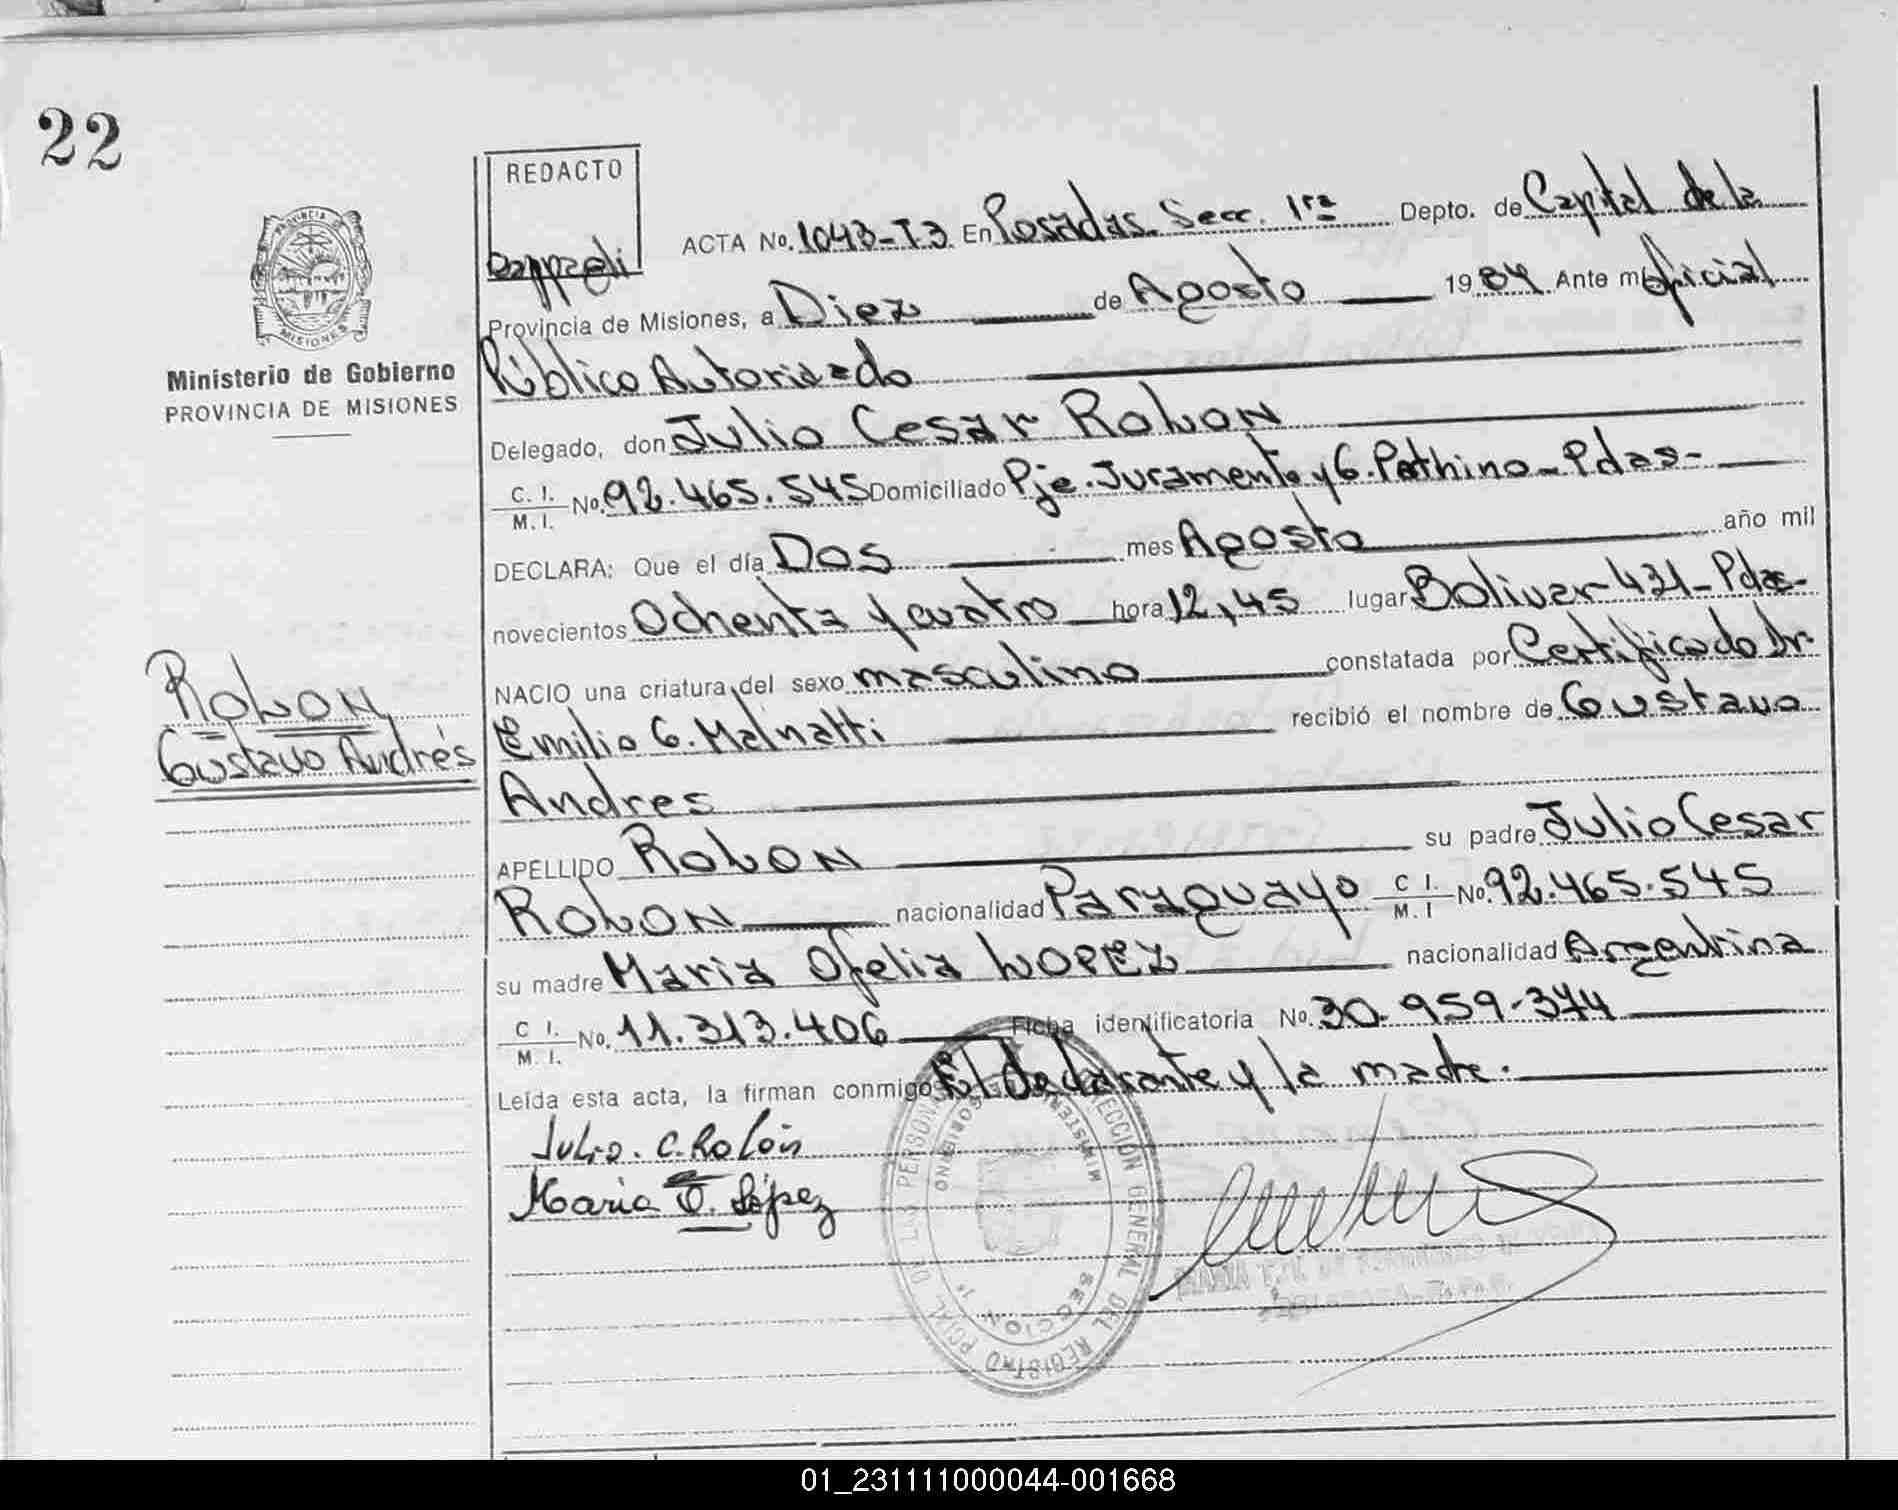 22
REDACTO
PROVINCIA DE
MISIONES
Ministerio de Gobierno
PROVINCIA DE MISIONES
ACTA No. 1043-T.3 En Posadas. Secc. 1ra Depto. de Capital de la
Provincia de Misiones, a Diez de Agosto 1984 Ante mí Oficial
Público Autorizado
Delegado, don Julio Cesar ROLON
C. I. / M. I. No. 92.465.545 Domiciliado Pje. Juramento y G. Pathino - Pdas-
DECLARA: Que el día Dos mes Agosto año mil
novecientos Ochenta y cuatro hora 12,45 lugar Bolivar 431- Pdas-
NACIO una criatura del sexo masculino constatada por Certificado Dr.
Emilio G. Malnatti recibió el nombre de Gustavo
Andres
APELLIDO ROLON su padre Julio Cesar
ROLON nacionalidad Paraguayo C I. / M. I No. 92.465.545
su madre Maria Ofelia LOPEZ nacionalidad Argentina
C I. / M. I. No. 11.313.406 Ficha identificatoria No. 30.959.344
Leída esta acta, la firman conmigo El declarante y la madre.
Julio. C. Rolón
Maria O. López
ROLON
Gustavo Andrés
DIRECCION GENERAL DEL REGISTRO PCIAL. DE LAS PERSONAS
MINISTERIO GOBIERNO
SECCION 1ª
01_231111000044-001668